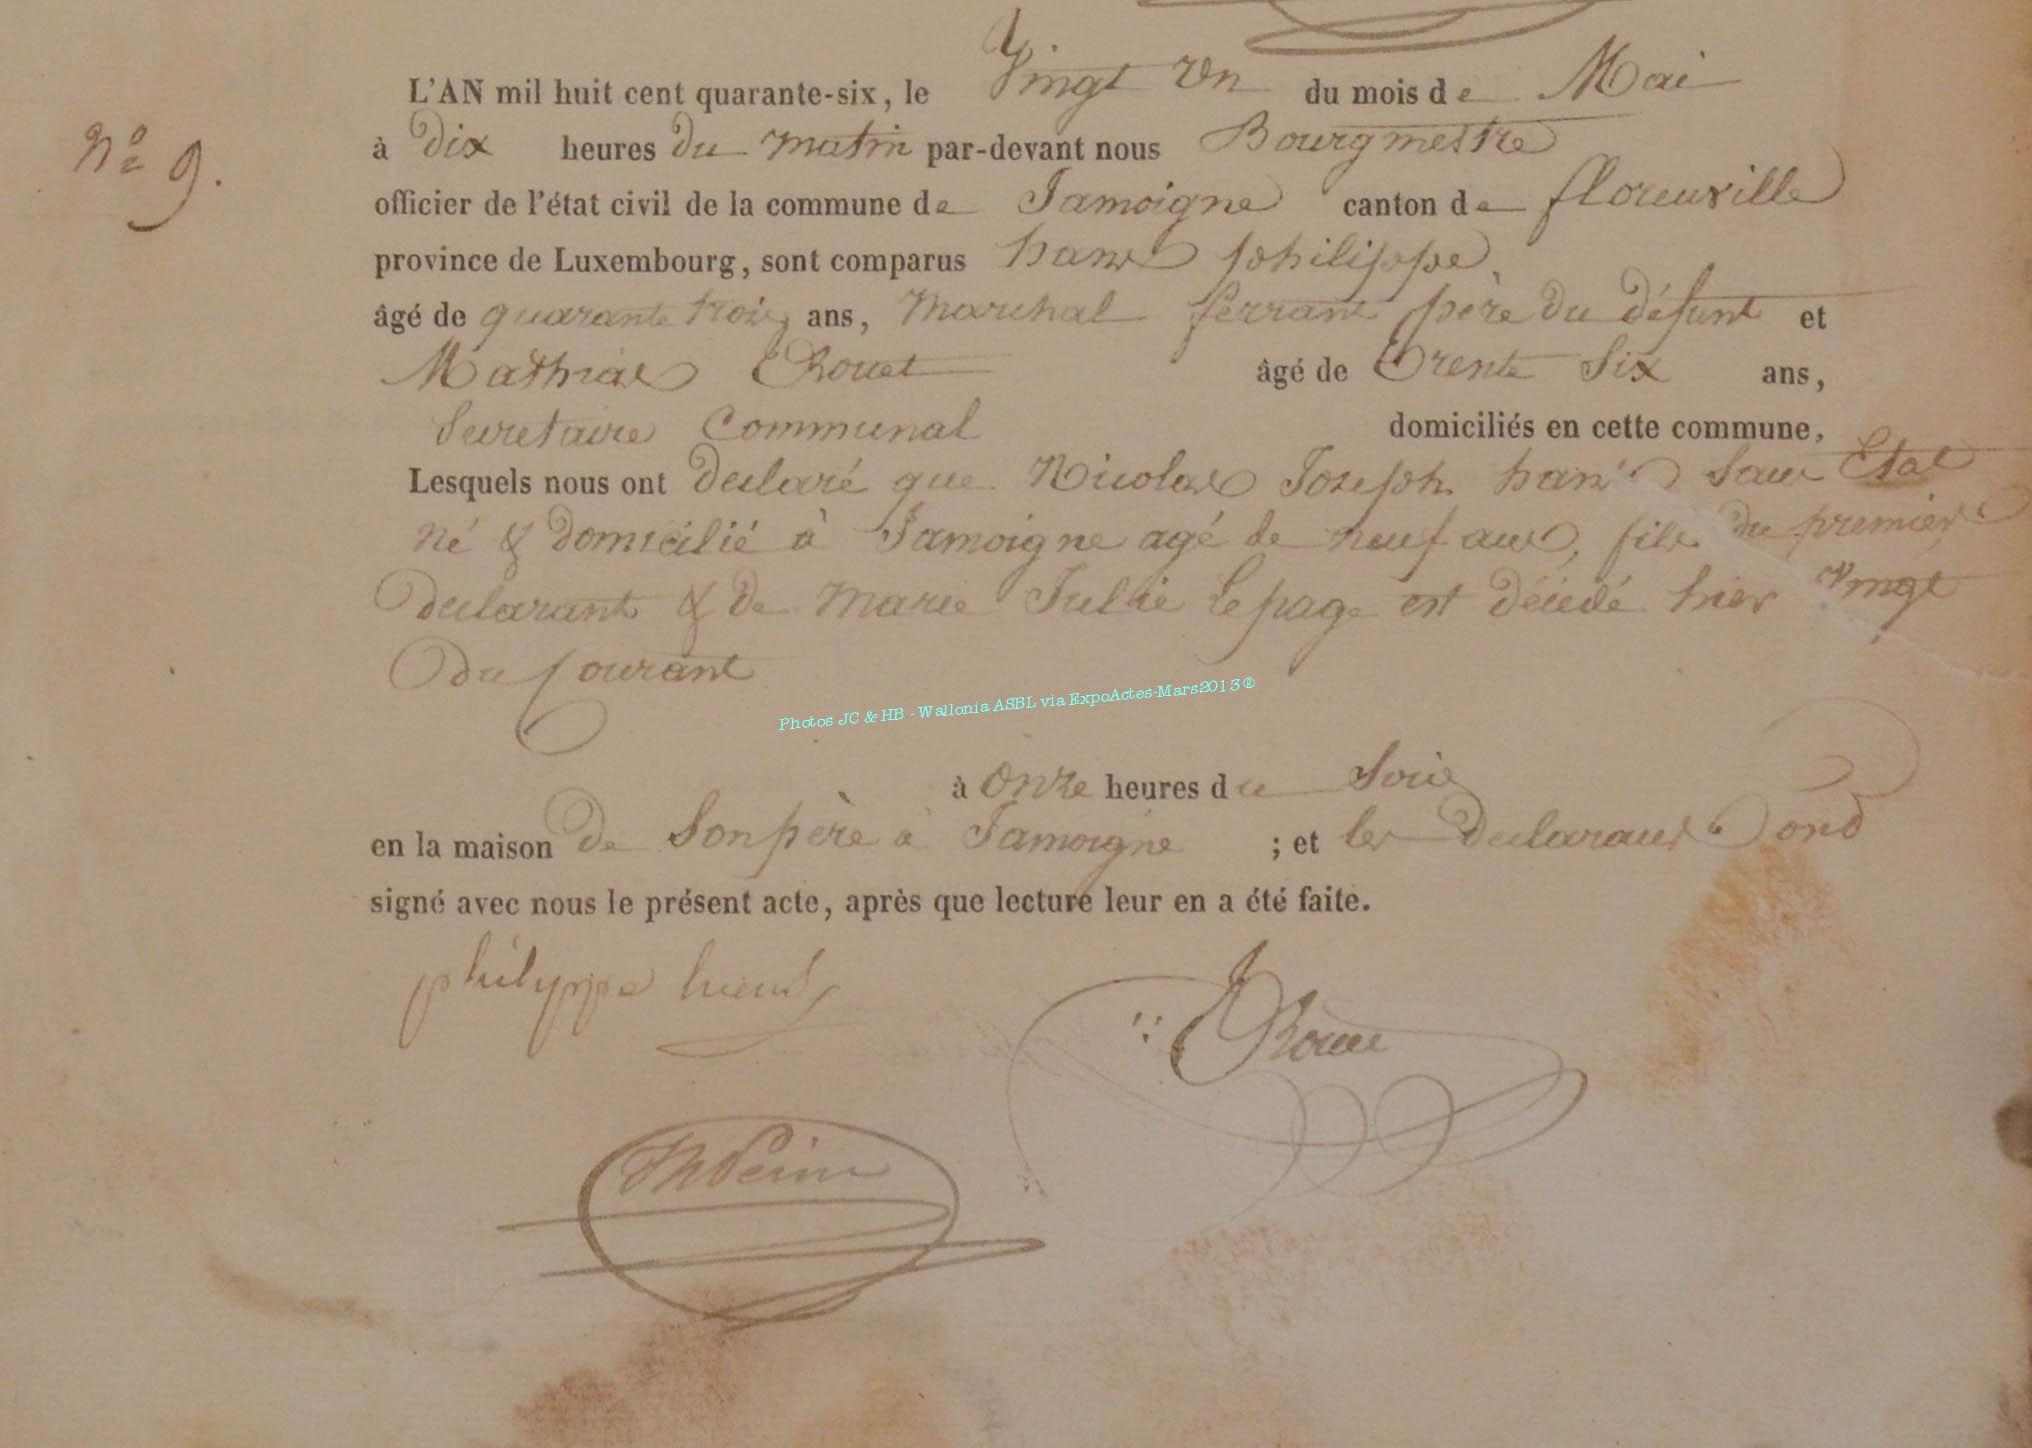 L'AN mil huit cent quarante-six, le Vingt Un du mois de Mai
N° 9.
à dix heures du matin par-devant nous Bourgmestre
officier de l'état civil de la commune de Jamoigne canton de florenville
province de Luxembourg, sont comparus hans philippe
âgé de quarante trois ans, Marchal ferrant père du défunt et
Mathias Rouet âgé de Trente Six ans,
Secretaire Communal domiciliés en cette commune,
Lesquels nous ont declaré que Nicolas Joseph hans Sans Etat
né & domicilié à Jamoigne agé de neuf ans, fils du premier
declarant & de Marie Julie Lepage est décédé hier Vingt
du Courant
Photos JC & HB - Wallonia ASBL via ExpoActes-Mars2013®
à Onze heures du Soir
en la maison de Son père à Jamoigne ; et les declarans ond
signé avec nous le présent acte, après que lecture leur en a été faite.
philippe